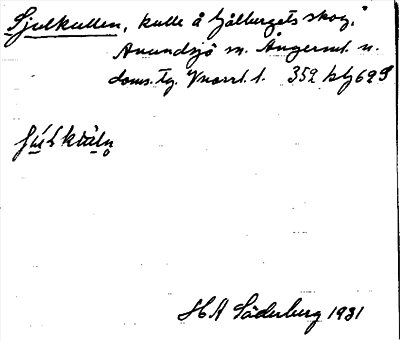 Sjulkullen, kulle å Sjölbergets skog,
Anundsjö sn. Ångerml. n.
doms. tg. Vnorrl. l. 352 bbj 698
HA Söderberg 1931